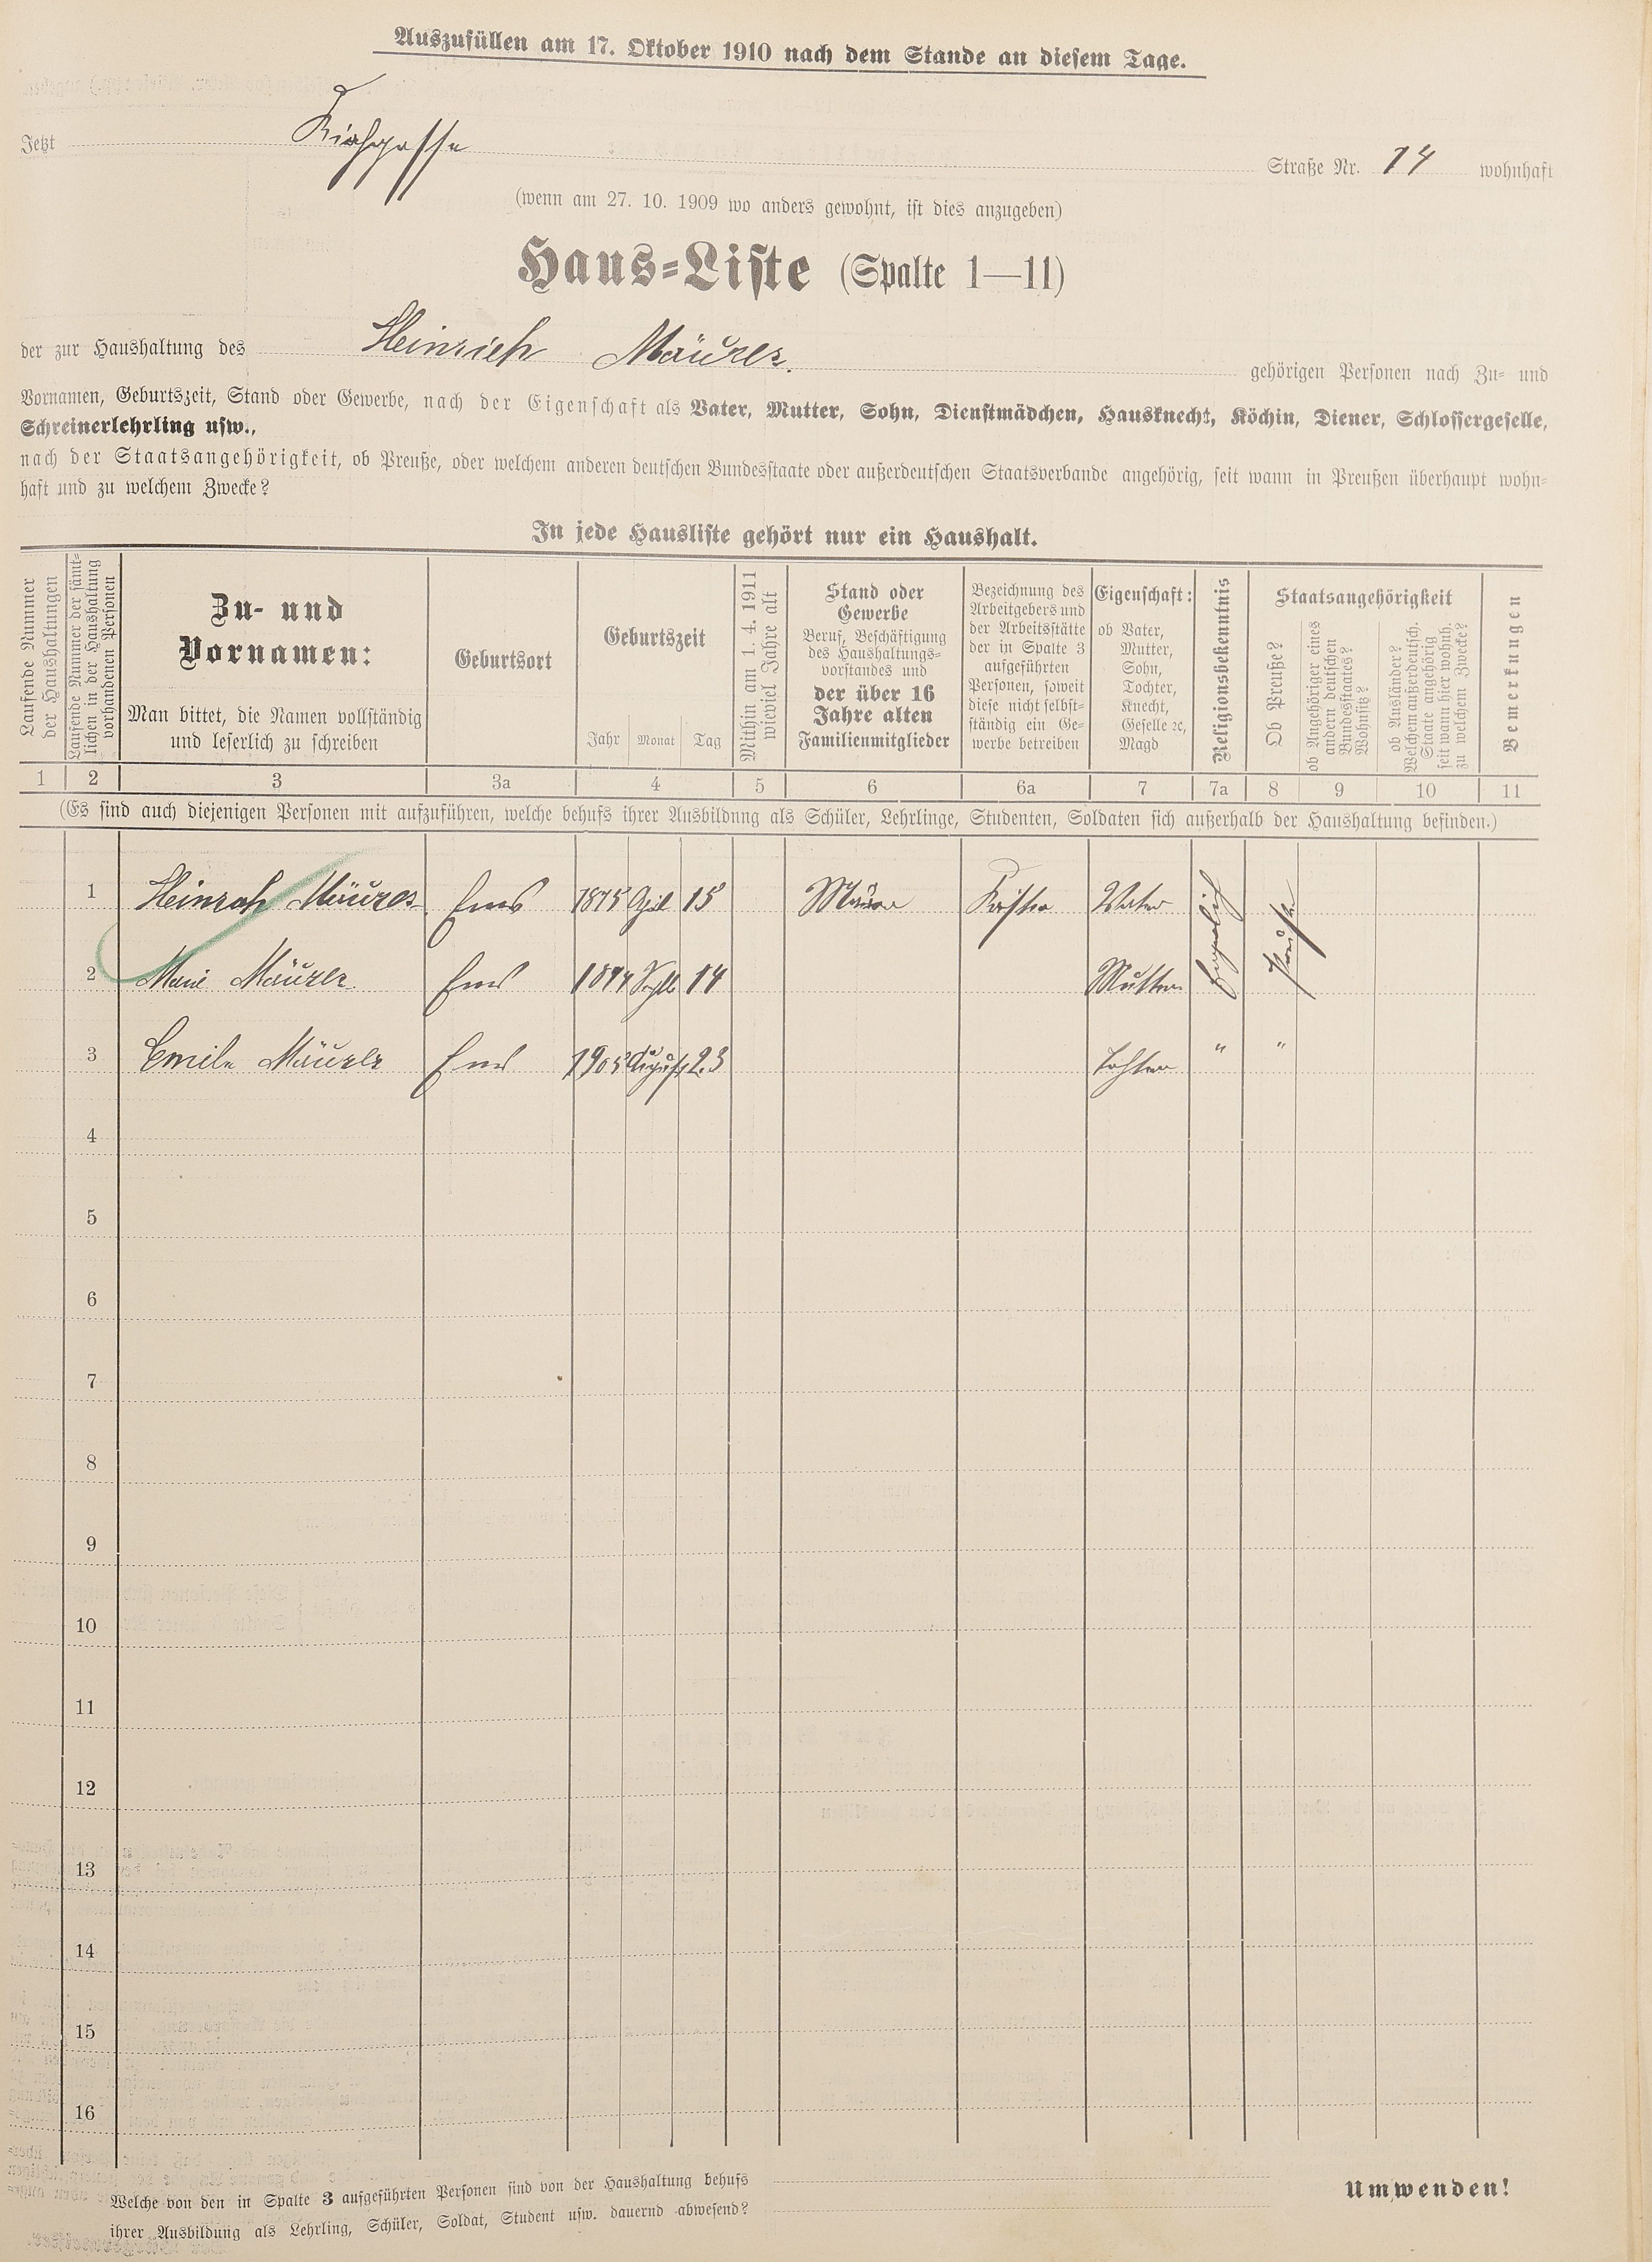 Auszufüllen am 17. Oktober 1910 nach dem Stande an diesem Tage.
Jetzt Kirchgasse Straße Nr. 14 wohnhaft
(wenn am 27. 10. 1909 wo anders gewohnt, ist dies anzugeben)
Haus-Liste (Spalte 1—11)
der zur Haushaltung des Heinrich Mäurer. gehörigen Personen nach Zu- und
Vornamen, Geburtszeit, Stand oder Gewerbe, nach der Eigenschaft als Vater, Mutter, Sohn, Dienstmädchen, Hausknecht, Köchin, Diener, Schlossergeselle,
Schreinerlehrling usw.,
nach der Staatsangehörigkeit, ob Preuße, oder welchem anderen deutschen Bundesstaate oder außerdeutschen Staatsverbande angehörig, seit wann in Preußen überhaupt wohn-
haft und zu welchem Zwecke?
In jede Hausliste gehört nur ein Haushalt.
Laufende Nummer
der Haushaltungen
Laufende Nummer der sämt-
lichen in der Haushaltung
vorhandenen Personen
Zu- und
Vornamen:
Man bittet, die Namen vollständig
und leserlich zu schreiben
Geburtsort
Geburtszeit
Jahr Monat Tag
Mithin am 1. 4. 1911
wieviel Jahre alt
Stand oder
Gewerbe
Beruf, Beschäftigung
des Haushaltungs-
vorstandes und
der über 16
Jahre alten
Familienmitglieder
Bezeichnung des
Arbeitgebers und
der Arbeitsstätte
der in Spalte 3
aufgeführten
Personen, soweit
diese nicht selbst-
ständig ein Ge-
werbe betreiben
Eigenschaft:
ob Vater,
Mutter,
Sohn,
Tochter,
Knecht,
Geselle ꝛc,
Magd
Religionsbekenntnis
Staatsangehörigkeit
Ob Preuße?
ob Angehöriger eines
andern deutschen
Bundesstaates?
Wohnsitz?
ob Ausländer?
Welchem außerdeutsch.
Staate angehörig
seit wann hier wohnh.
zu welchem Zwecke?
Bemerkungen
1 2 3 3a 4 5 6 6a 7 7a 8 9 10 11
(Es sind auch diejenigen Personen mit aufzuführen, welche behufs ihrer Ausbildung als Schüler, Lehrlinge, Studenten, Soldaten sich außerhalb der Haushaltung befinden.)
1 Heinrich Mäurer. Ems 1875 April 15 Vater
2 Mäurer. Ems 14 Mutter
3 Mäurer Ems August 23 Tochter " "
4
5
6
7
8
9
10
11
12
13
14
15
16
Welche von den in Spalte 3 aufgeführten Personen sind von der Haushaltung behufs
ihrer Ausbildung als Lehrling, Schüler, Soldat, Student usw. dauernd abwesend?
Umwenden!